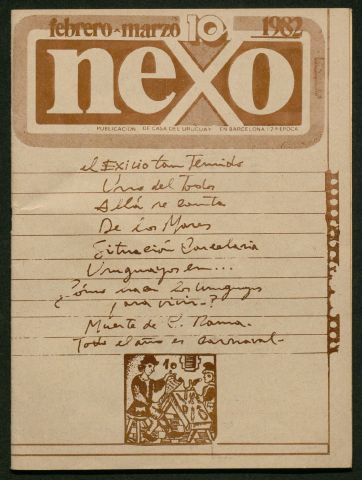 febrero-marzo 10 1982
nexo
PUBLICACION DE CASA DEL URUGUAY EN BARCELONA / 2ª EPOCA
el Exilio tan Temido
Uno del Todos
Allá se cuenta
De los Mares
Situación Carcelaria
Uruguayos en...
¿Cómo van los uruguayos
para vivir-?
Muerte de C. Rama.
Todo el año es Carnaval-
10